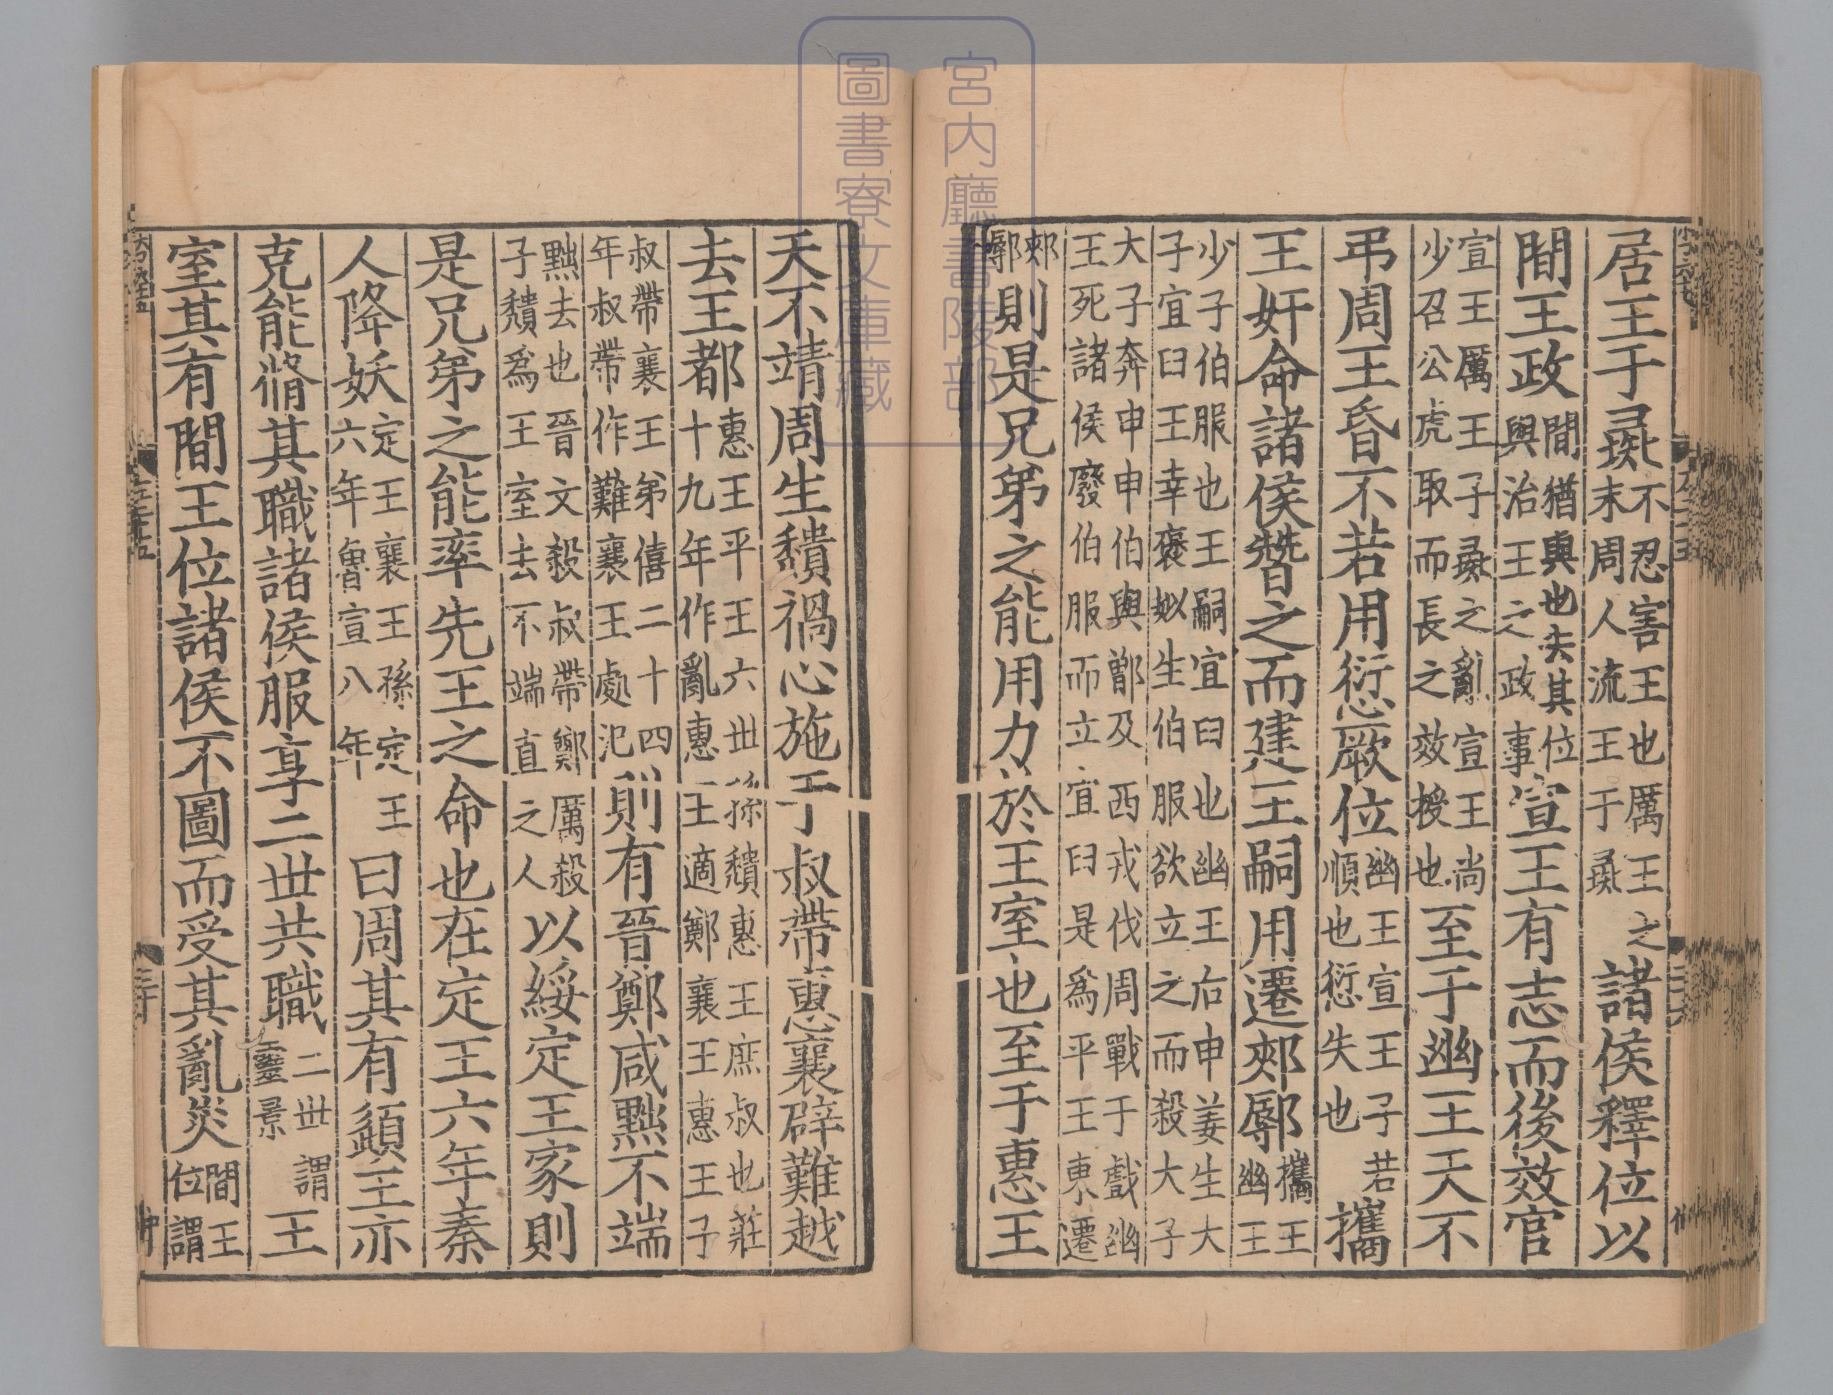 居王于彘不忍害王也厲王之末周人流王于彘諸侯釋位以
間王政間猶與也去其位與治王之政事宣王有志而後效官
宣王厲王子彘之亂宣王尚少召公虎取而長之效授也至于幽王天不
弔周王昏不若用愆厥位幽王宣王子若順也愆失也攜
王奸命諸侯替之而建王嗣用遷郟鄏攜王幽王
少子伯服也王嗣宜臼也幽王后申姜生大子宜臼王幸褒姒生伯服欲立之而殺大子
大子奔申申伯與鄫及西戎伐周戰于戲幽王死諸侯廢伯服而立宜臼是為平王東遷
郟鄏則是兄弟之能用力於王室也至于惠王
天不靖周生穨禍心施于叔帶惠襄辟難越
去王都惠王平王六世孫穨惠王庶叔也莊十九年作亂惠王適鄭襄王惠王子
叔帶襄王弟僖二十四年叔帶作難襄王處氾則有晉鄭咸黜不端
黜去也晉文殺叔帶鄭厲殺子穨為王室去不端直之人以綏定王家則
是兄弟之能率先王之命也在定王六年秦
人降妖定王襄王孫定王六年魯宣八年曰周其有頿王亦
克能脩其職諸侯服享二世共職二世謂靈景王
室其有間王位諸侯不圖而受其亂災間王位謂
宮内廳書陵部
圖書寮文庫藏